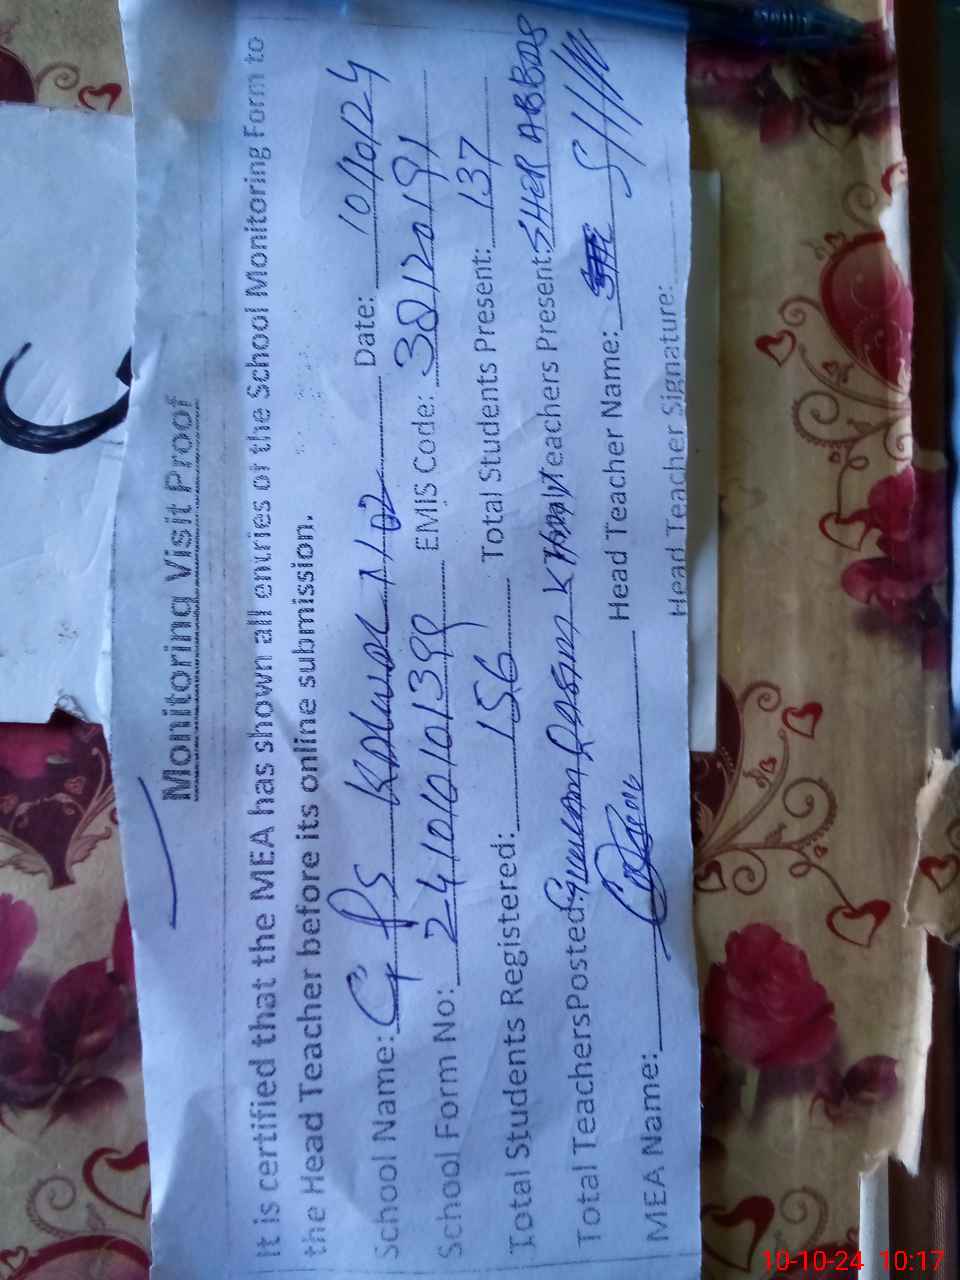 Monitoring Visit Proof
It is certified that the MEA has shown all entries of the School Monitoring Form to
the Head Teacher before its online submission.
School Name: GPS Date: 10/10/24
School Form No: 241010101399 EMIS Code: 38120191
Total Students Registered: 156 Total Students Present: 137
Total Teachers Posted: Teachers Present: SHER ABBAS
MEA Name: Head Teacher Name:
Head Teacher Signature:
10-10-24 10:17